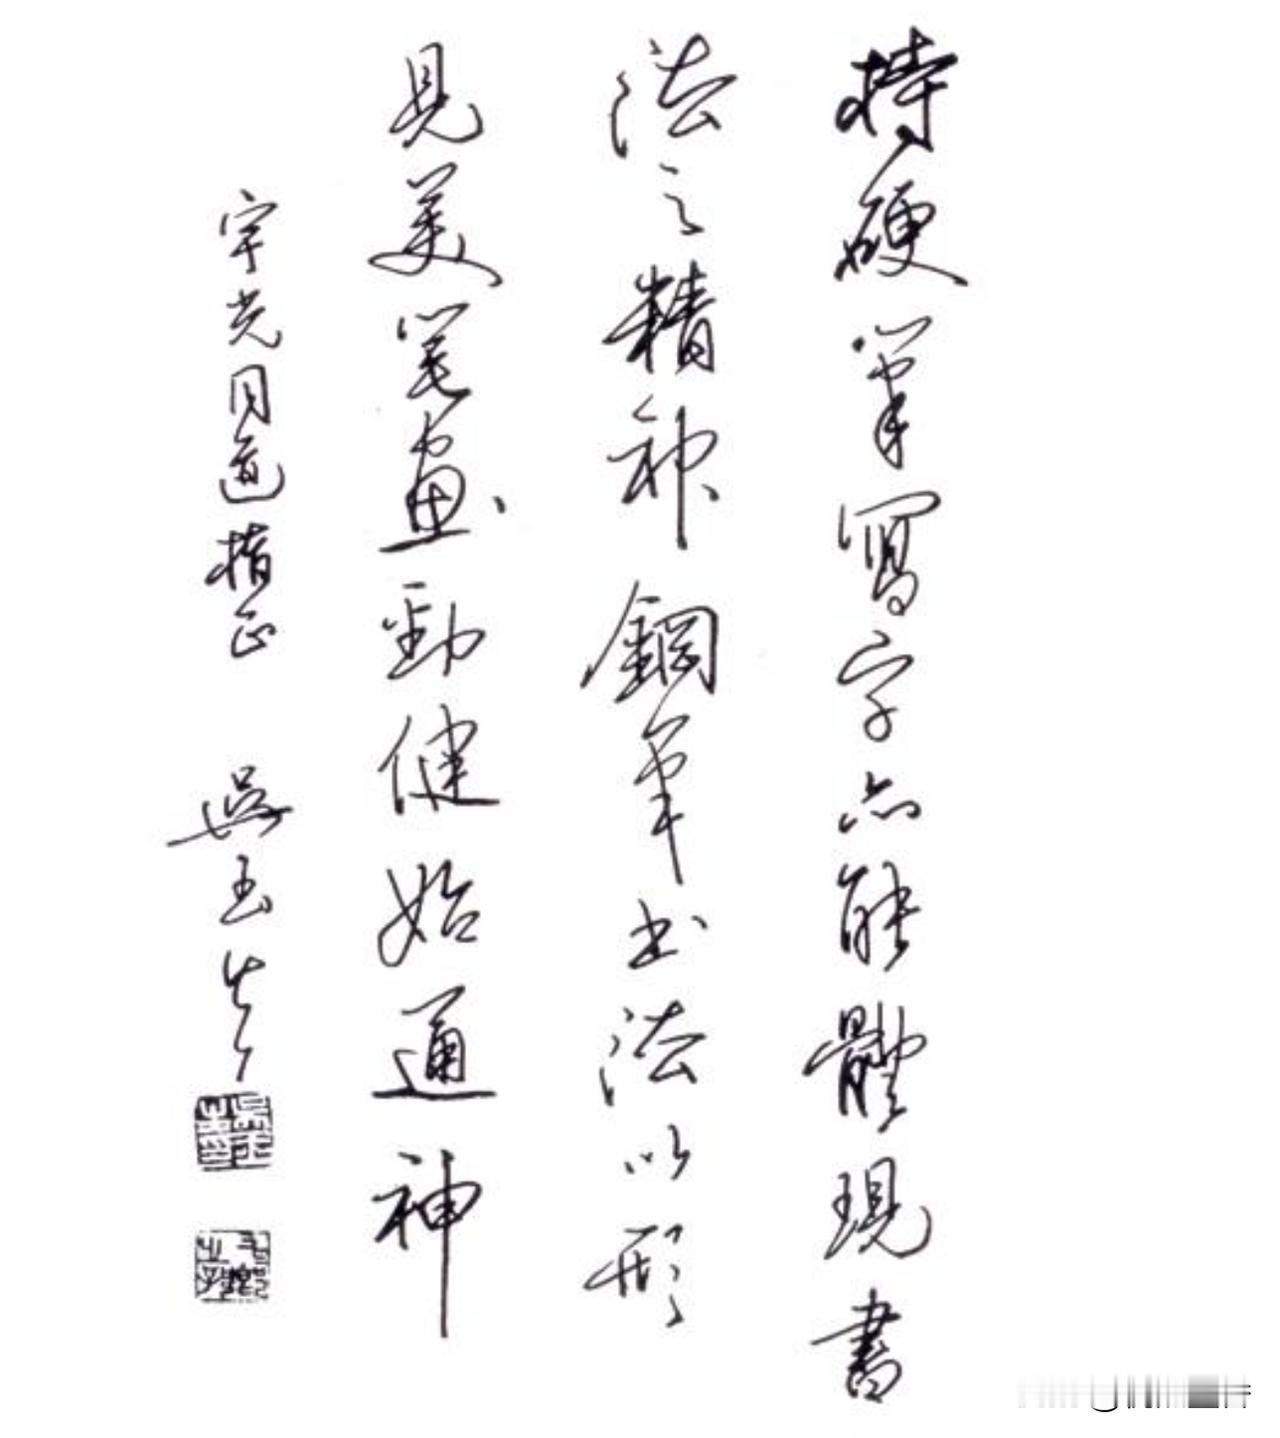 持硬筆寫字亦能體現書
法之精神鋼筆書法以形
見美笔畫勁健始通神
宇光同道指正 吳玉生